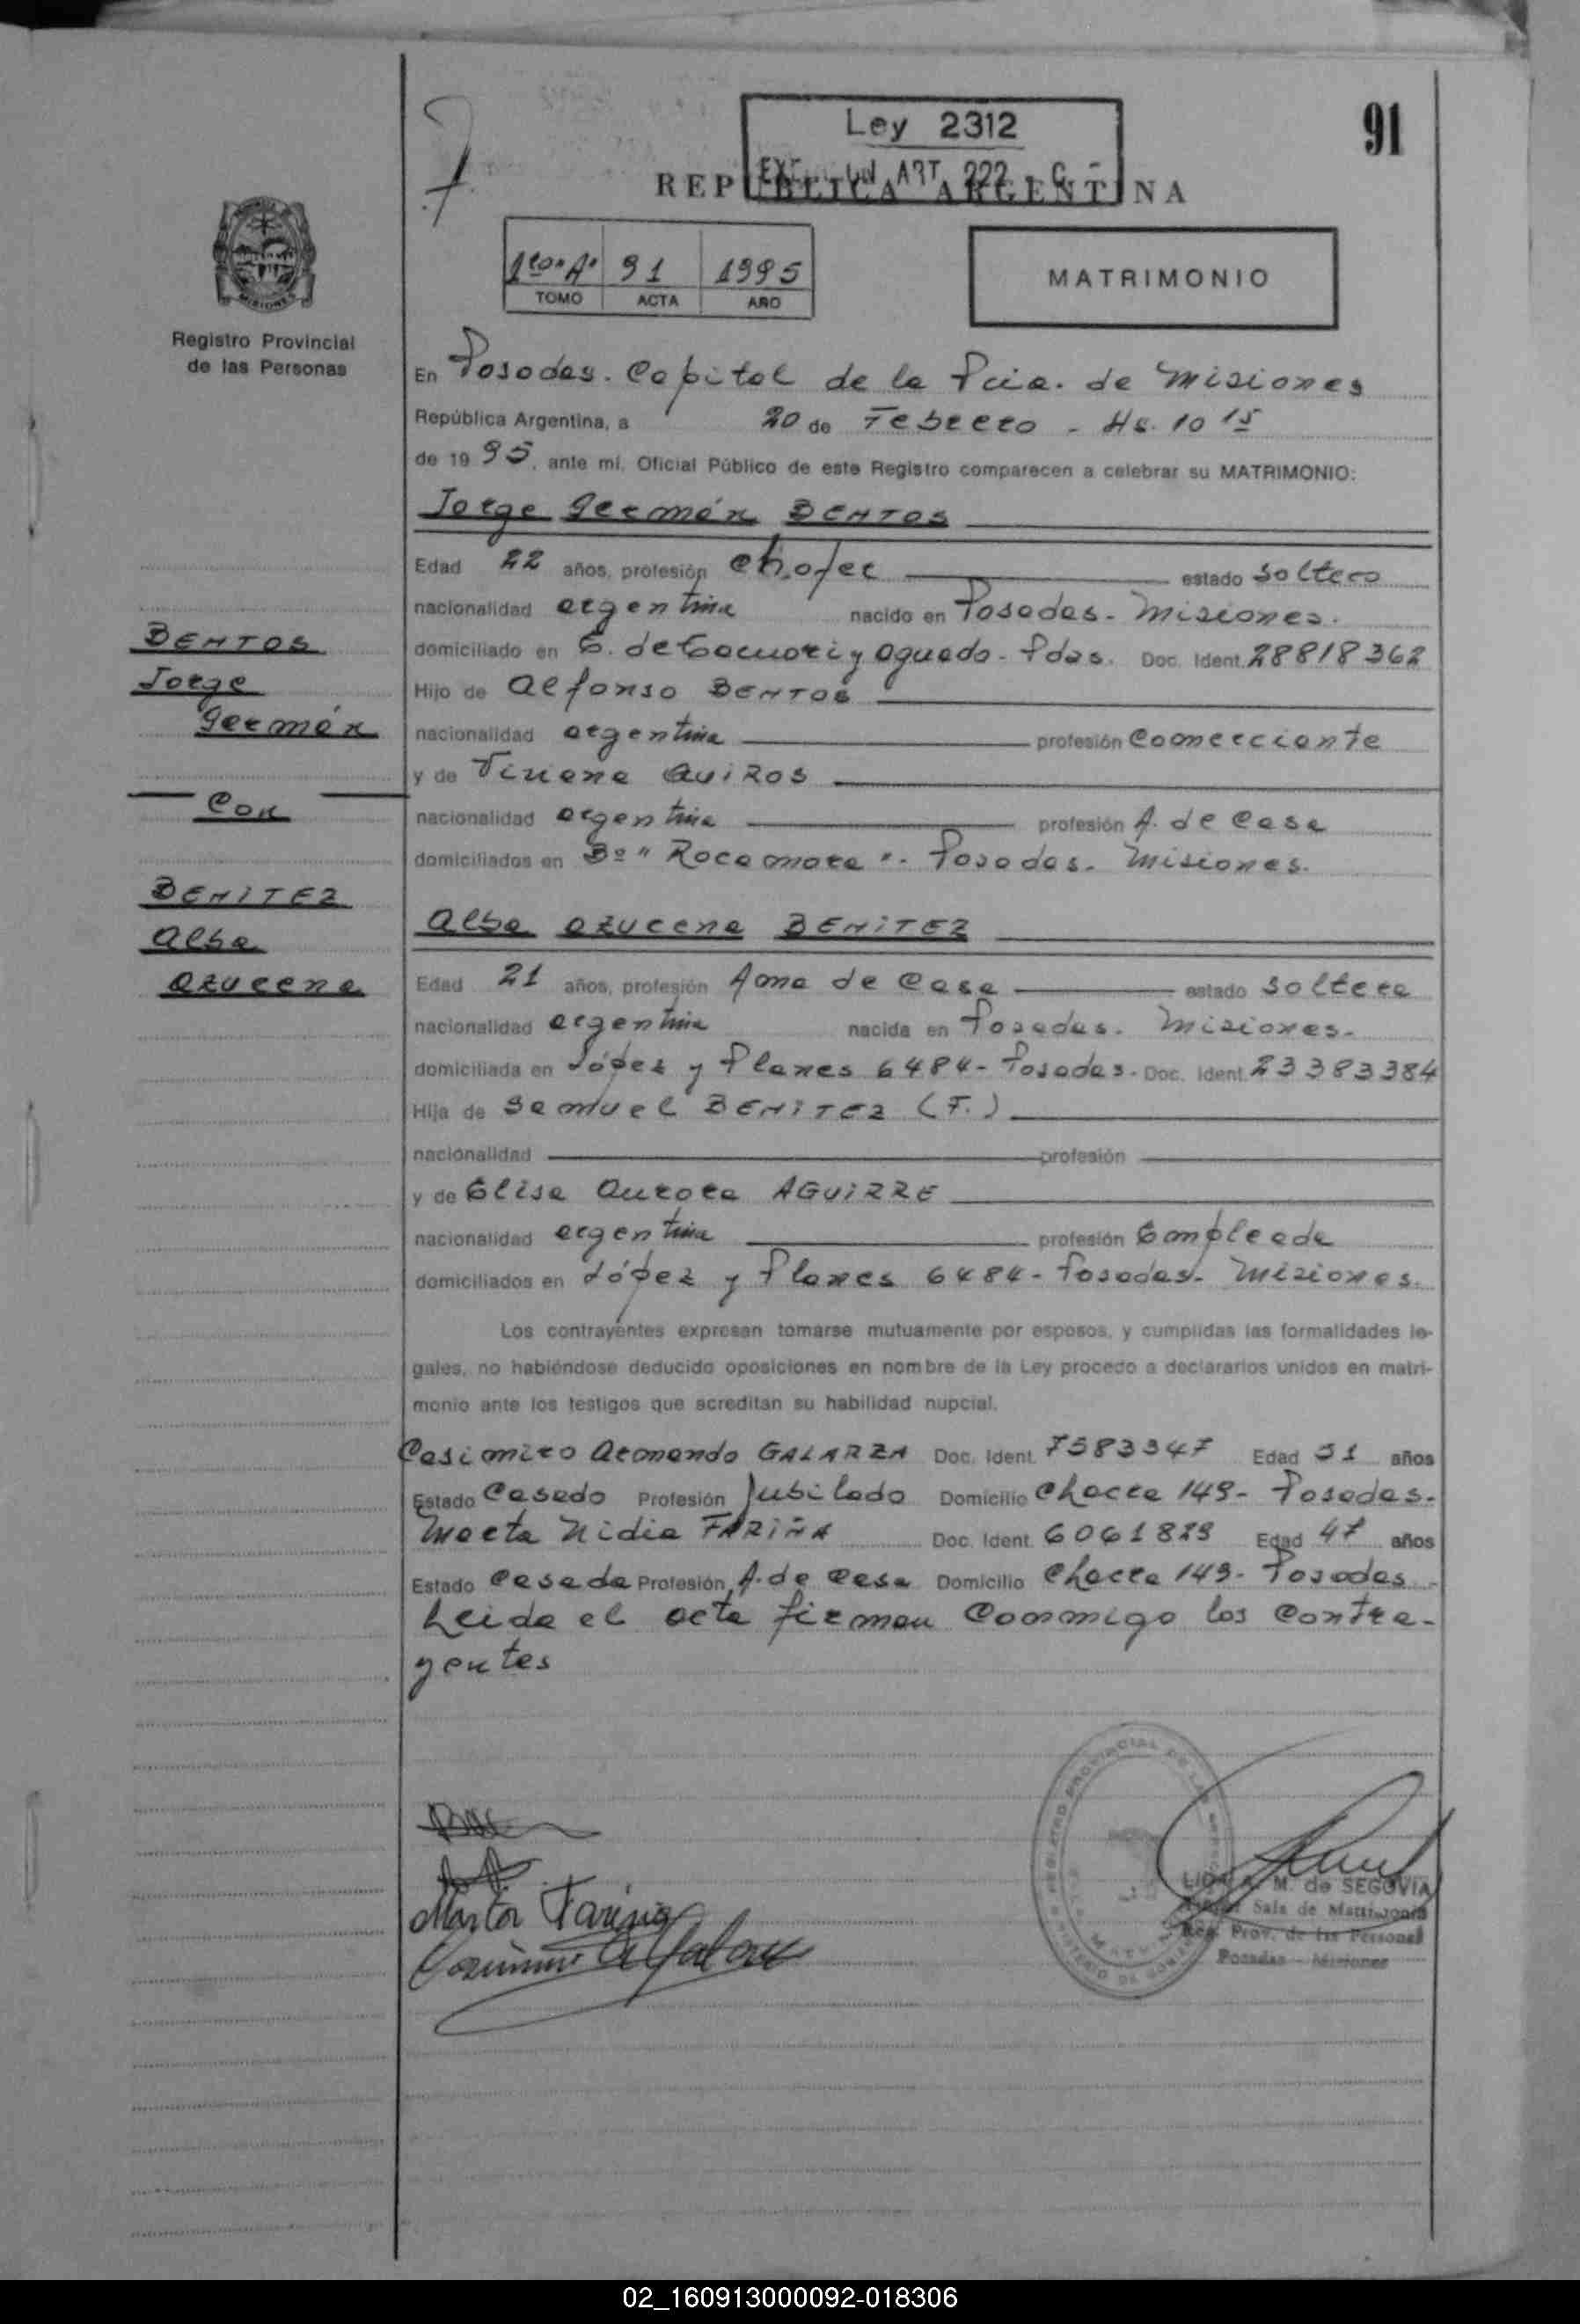 91
Ley 2312
ART. 222
REPUBLICA ARGENTINA
1ro "A" 91 1995
TOMO ACTA AÑO
MATRIMONIO
MISIONES
Registro Provincial
de las Personas
En Posadas. Capital de la Pcia. de Misiones
República Argentina, a 20 de Febrero - Hs. 10 15
de 19 95, ante mí, Oficial Público de este Registro comparecen a celebrar su MATRIMONIO:
Jorge Germán BENTOS
Edad 22 años, profesión chofer estado soltero
nacionalidad argentina nacido en Posadas - Misiones.
domiciliado en y aguado - Pdas. Doc. Ident. 28818362
Hijo de Alfonso BENTOS
nacionalidad argentina profesión Comerciante
y de QUIROS
nacionalidad argentina profesión A. de Casa
domiciliados en Bº "Rocamora" - Posadas - Misiones.
BENTOS
Jorge
Germán
Con
BENITEZ
Alba
Azucena
Alba Azucena BENITEZ
Edad 21 años, profesión Ama de Casa estado soltera
nacionalidad argentina nacida en Posadas. Misiones -
domiciliada en López y Planes 6484 - Posadas - Doc. Ident. 23383384
Hija de Samuel BENITEZ (F.)
nacionalidad profesión
y de Elisa Aurora AGUIRRE
nacionalidad argentina profesión Empleada
domiciliados en López y Planes 6484 - Posadas - Misiones.
Los contrayentes expresan tomarse mutuamente por esposos, y cumplidas las formalidades le-
gales, no habiéndose deducido oposiciones en nombre de la Ley procedo a declararlos unidos en matri-
monio ante los testigos que acreditan su habilidad nupcial.
Casimiro Armando GALARZA Doc. Ident. 7583347 Edad 51 años
Estado Casado Profesión Jubilado Domicilio Chacra 149 - Posadas -
Marta Nidia FARIÑA Doc. Ident. 6061829 Edad 47 años
Estado Casada Profesión A. de Casa Domicilio Chacra 149 - Posadas -
Leida el acta firman Conmigo los Contra-
yentes
Marta Fariña
M. de SEGOVIA
Sala de Matrimonio
Reg. Prov. de las Personas
Posadas - Misiones
02_160913000092-018306